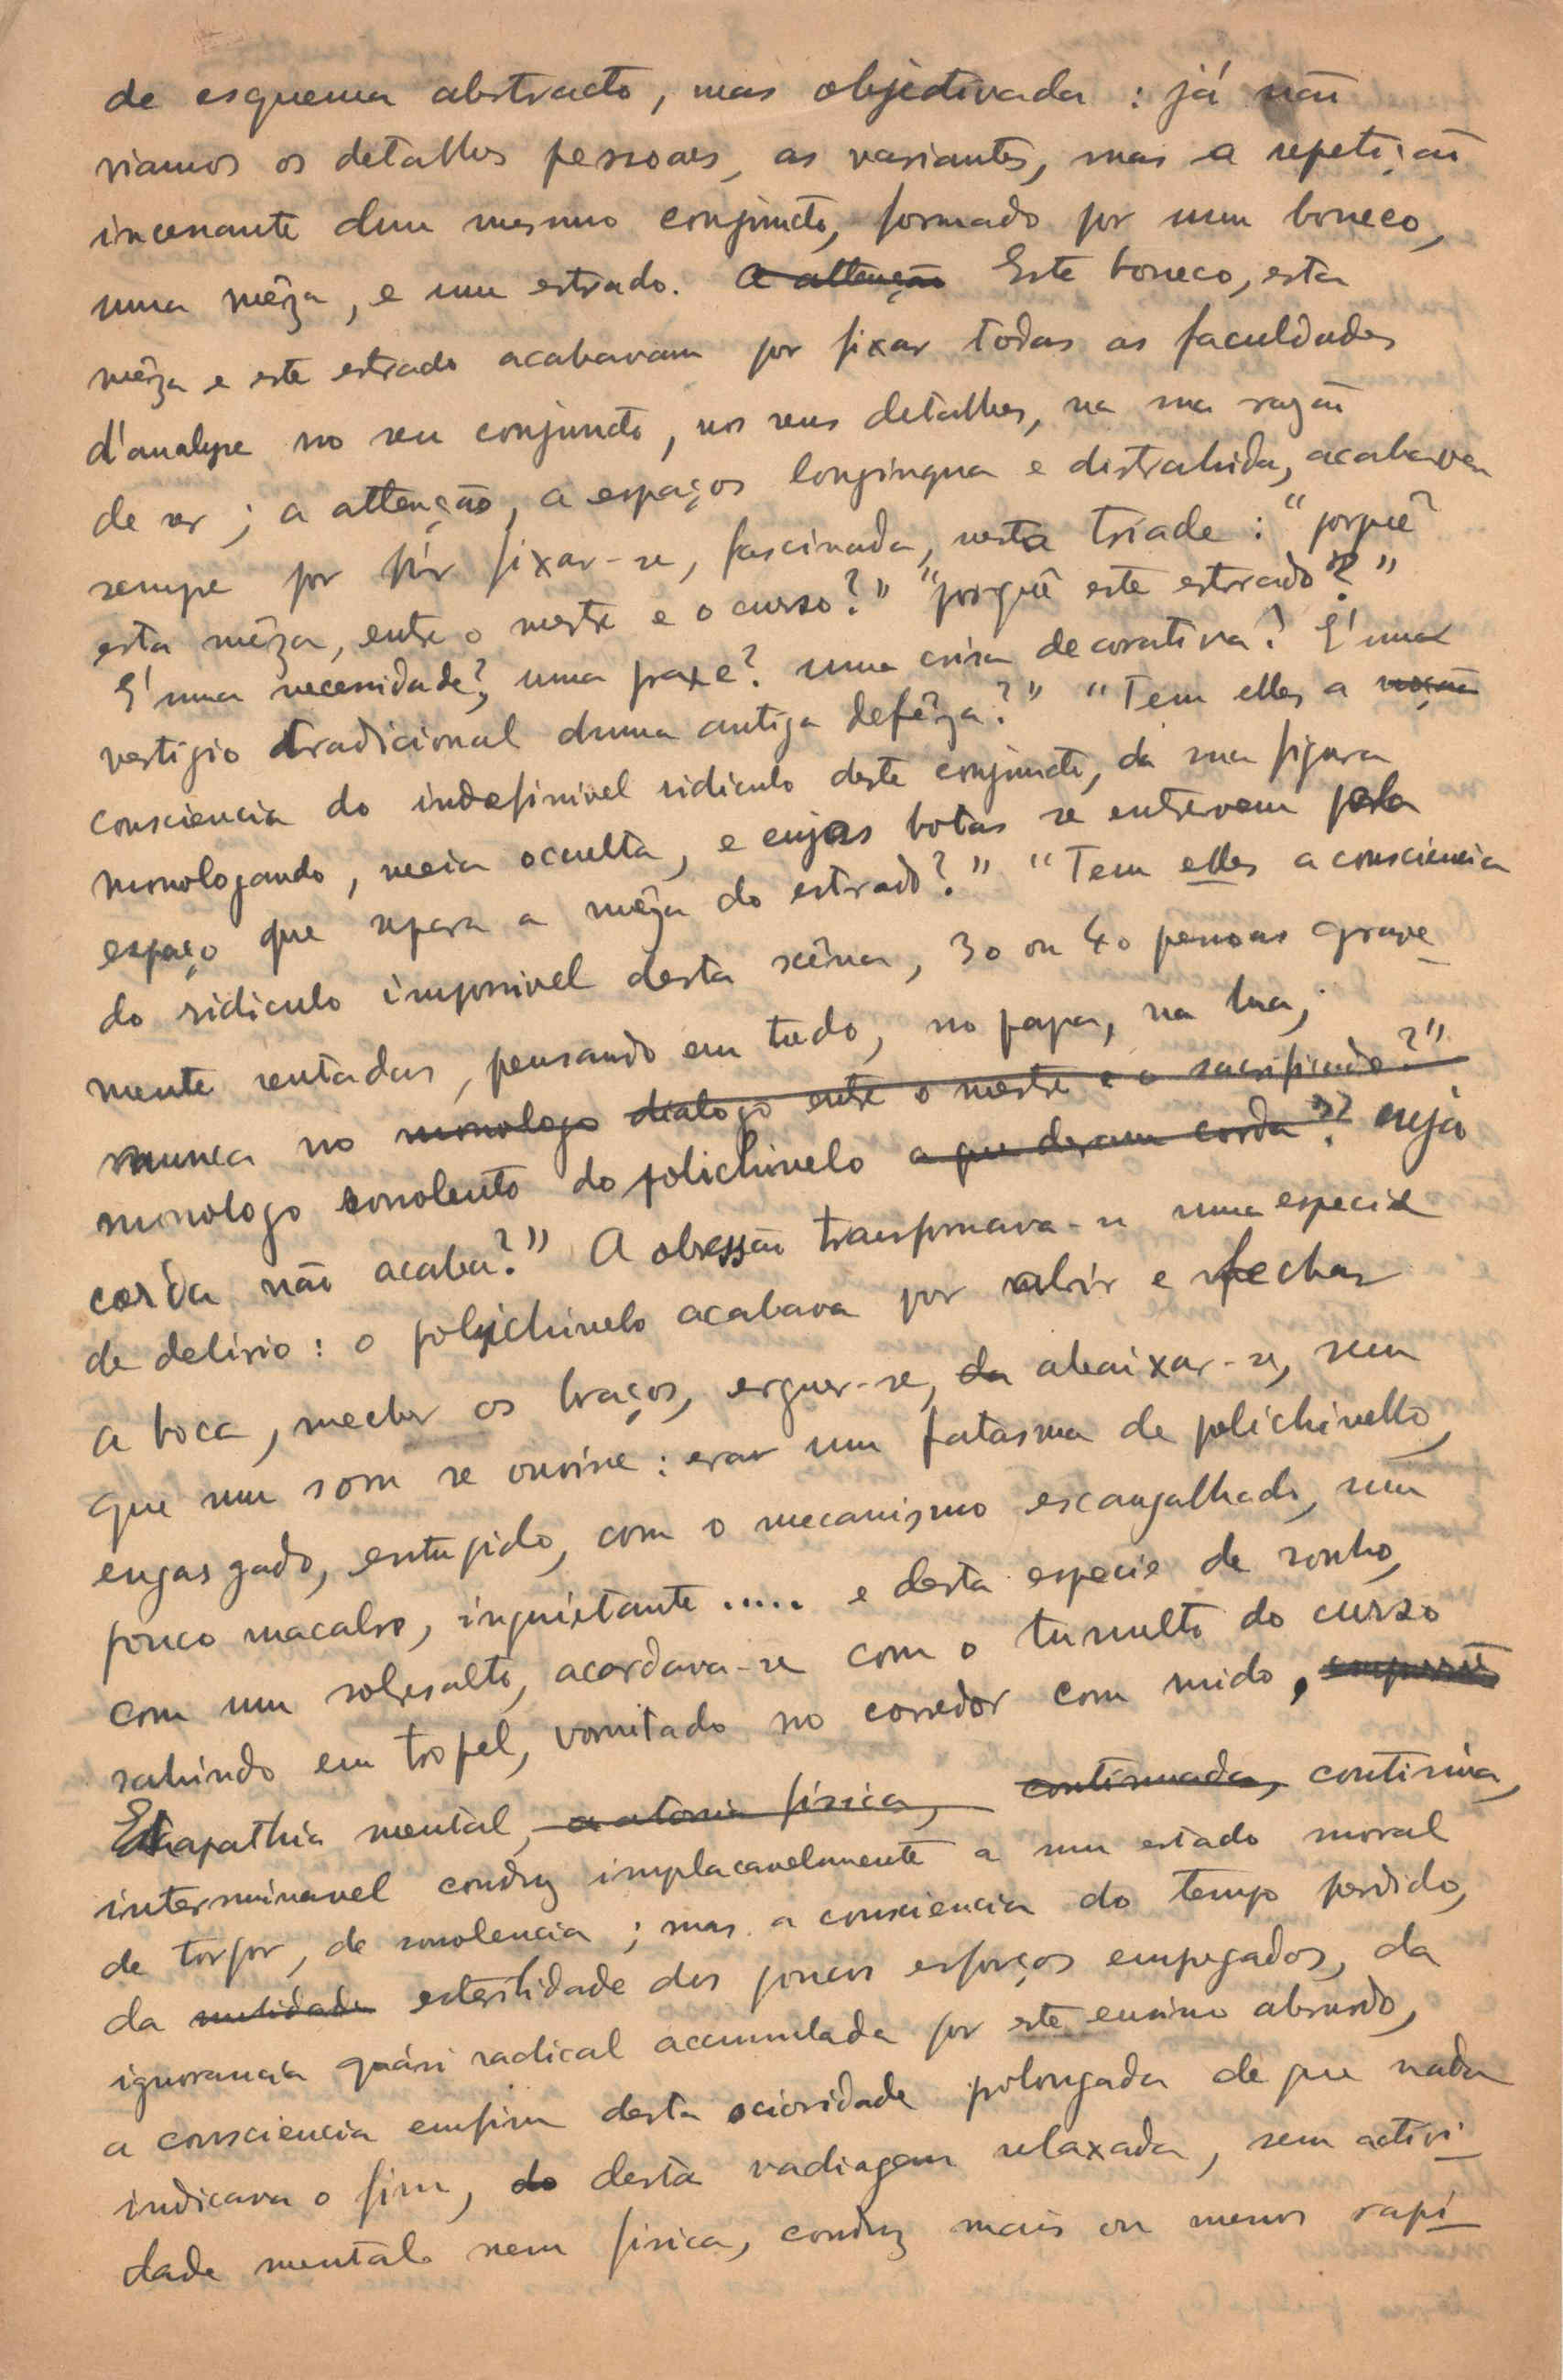 de esquema abstracto, mas objectivada : já não
viamos os detalhes pessoaes, as variantes, mas a repetição
incessante dum mesmo conjuncto, formado por um boneco,
uma mêza, e um estrado. A attenção Este boneco, esta
mêza e este estrado acabavam por fixar todas as faculdades
d'analyse no seu conjuncto, nos seus detalhes, na sua razão
de ser ; a attenção, a espaços longinqua e distrahida, acabava
sempre por fixar-se, fascinada, nesta triade : "porquê
esta mêza, entre o mestre e o curso?" "porquê este estrado?"
E' uma necessidade?, uma praxe? uma coisa decorativa? E' um
vestigio tradicional duma antiga defêza?" "Tem elles a noção
consciencia do indefinivel ridiculo deste conjuncto, da sua figura
monologando, meia occulta, e cujas botas se entrevem pelo
espaço que separa a mêza do estrado?" "Tem elles a consciencia
do ridiculo impossivel desta scêna, 30 ou 40 pessoas grave-
mente sentadas, pensando em tudo, no papa, na lua,
nunca no monologo dialogo entre o mestre e o sacrificado?"
monologo sonolento do polichinelo a que deram corda"? cuja
corda não acaba?" A obsessão transformava-se uma especie
de delirio : o polichinelo acabava por abrir e fechar
a boca, mecher os braços, erguer-se, da abaixar-se, sem
que um som se ouvisse : era um fatasma de polichinello,
engasgado, entupido, com o mecanismo escangalhado, um
pouco macabro, inquietante ..... e desta especie de sonho,
com um sobresalto, acordava-se com o tumulto do curso
sahindo em tropel, vomitado no corredor com ruido,
Esta apathia mental, a atonia fisica, continuada, continua,
interminavel conduz implacavelmente a um estado moral
de torpor, de sonolencia ; mas a consciencia do tempo perdido,
da nulidade esterilidade dos poucos esforços empegados, da
ignorancia quási radical accumulada por este ensino absurdo,
a consciencia emfim desta ociosidade prolongada de que nada
indicava o fim, do desta vadiagem relaxada, sem activi-
dade mental nem fisica, conduz mais ou menos rapi-